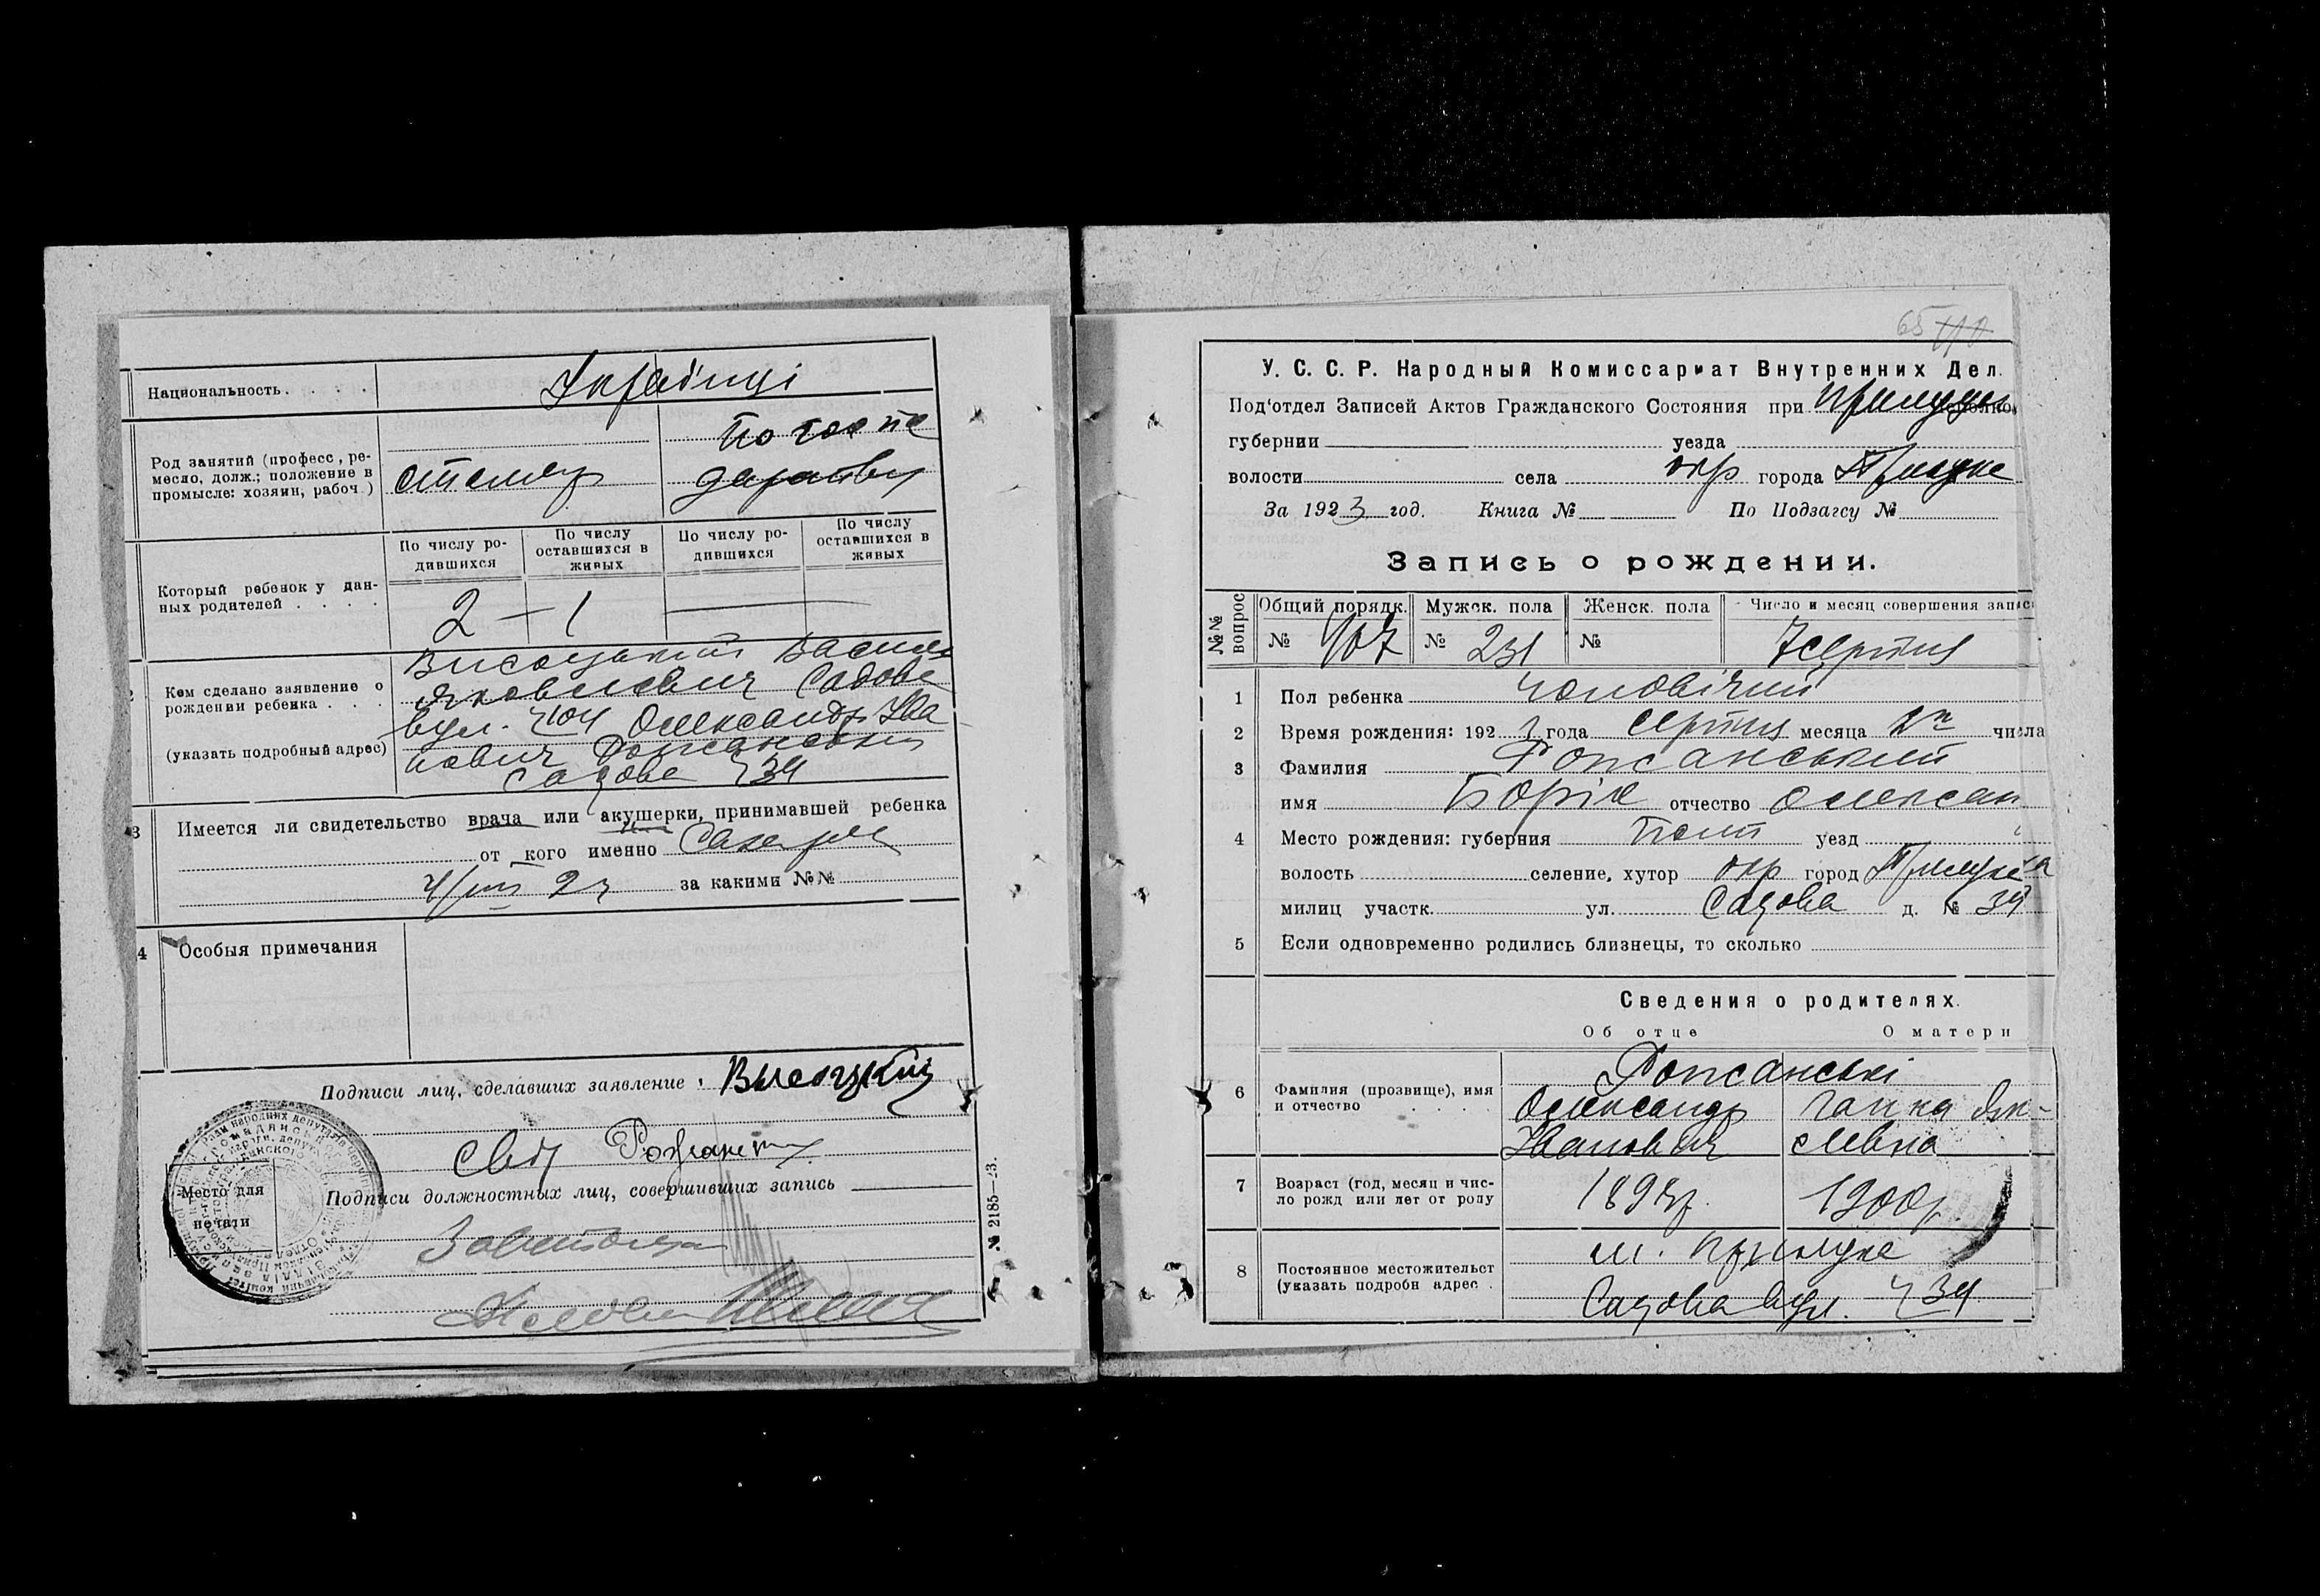 Национальность
Українці
Род занятий (професс, ре-
месло, долж.; положение в
промысле: хозяин, рабоч.)
столяр
по госпо
дарству
Который ребенок у дан-
ных родителей
По числу ро-
дившихся
По числу
оставшихся в
живых
По числу ро-
дившихся
По числу
оставшихся в
живых
2 — 1
Кем сделано заявление о
рождении ребенка
(указать подробный адрес)
Висоцький Василь
Яковлевич Садова
вул. Олександр Іва
нович
Садова 34
3 Имеется ли свидетельство врача или акушерки, принимавшей ребенка
от кого именно
4/VIII 23 за какими №№
4 Особыя примечания
Подписи лиц, сделавших заявление Высоцкий
Подписи должностных лиц, совершивших запись
Место для
печати
№ 2185—23.
65
У. С. С. Р. Народный Комиссариат Внутренних Дел.
Под'отдел Записей Актов Гражданского Состояния при
губернии уезда
волости села окр города Прилуке
За 1923 год. Книга № По Подзагсу №
Запись о рождении.
№№ вопрос
Общий порядк. Мужск. пола Женск. пола Число и месяц совершения запис
№ 407 № 231 № 7 серпня
1 Пол ребенка чоловічий
2 Время рождения: 1923 года серпня месяца числа
3 Фамилия
имя Боріс отчество Олексан
4 Место рождения: губерния Полт уезд
волость селение, хутор окр город Прилука
милиц участк. ул. Садова д. № 34
5 Если одновременно родились близнецы, то сколько
Сведения о родителях.
Об отце О матери
6 Фамилия (прозвище), имя
и отчество
Олександр
Іванович
Ганна Як-
левна
7 Возраст (год, месяц и чис-
ло рожд или лет от роду
1900р.
8 Постоянное местожительст
(указать подробн адрес
м. Прилуке
Садова вул. ч 34